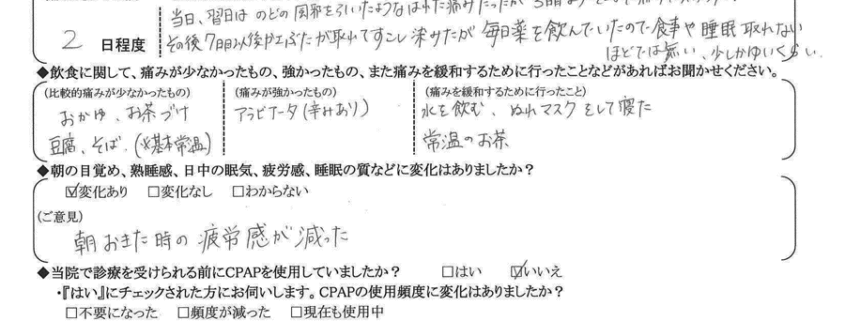 当日、翌日は のどの 風邪を引いたような はれた痛みだったが
2 日程度 その後7日目以後かさぶたが取れてすこし染みたが 毎日薬を飲んでいたので食事や睡眠取れない
ほどでは無い、少しかゆいくらい
◆飲食に関して、痛みが少なかったもの、強かったもの、また痛みを緩和するために行ったことなどがあればお聞かせください。
(比較的痛みが少なかったもの) (痛みが強かったもの) (痛みを緩和するために行ったこと)
おかゆ、お茶づけ アラビアータ(辛みあり) 水を飲む、ぬれマスクをして寝た
豆腐、そば、(※基本常温) 常温のお茶
◆朝の目覚め、熟睡感、日中の眠気、疲労感、睡眠の質などに変化はありましたか?
☑変化あり □変化なし □わからない
(ご意見)
朝おきた時の疲労感が減った
◆当院で診療を受けられる前にCPAPを使用していましたか? □はい ☑いいえ
・『はい』にチェックされた方にお伺いします。CPAPの使用頻度に変化はありましたか?
□不要になった □頻度が減った □現在も使用中